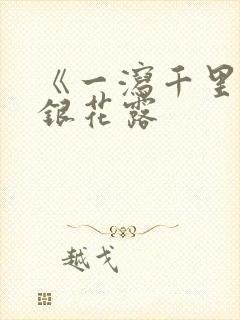 《一瀉千里
銀花露
越戈